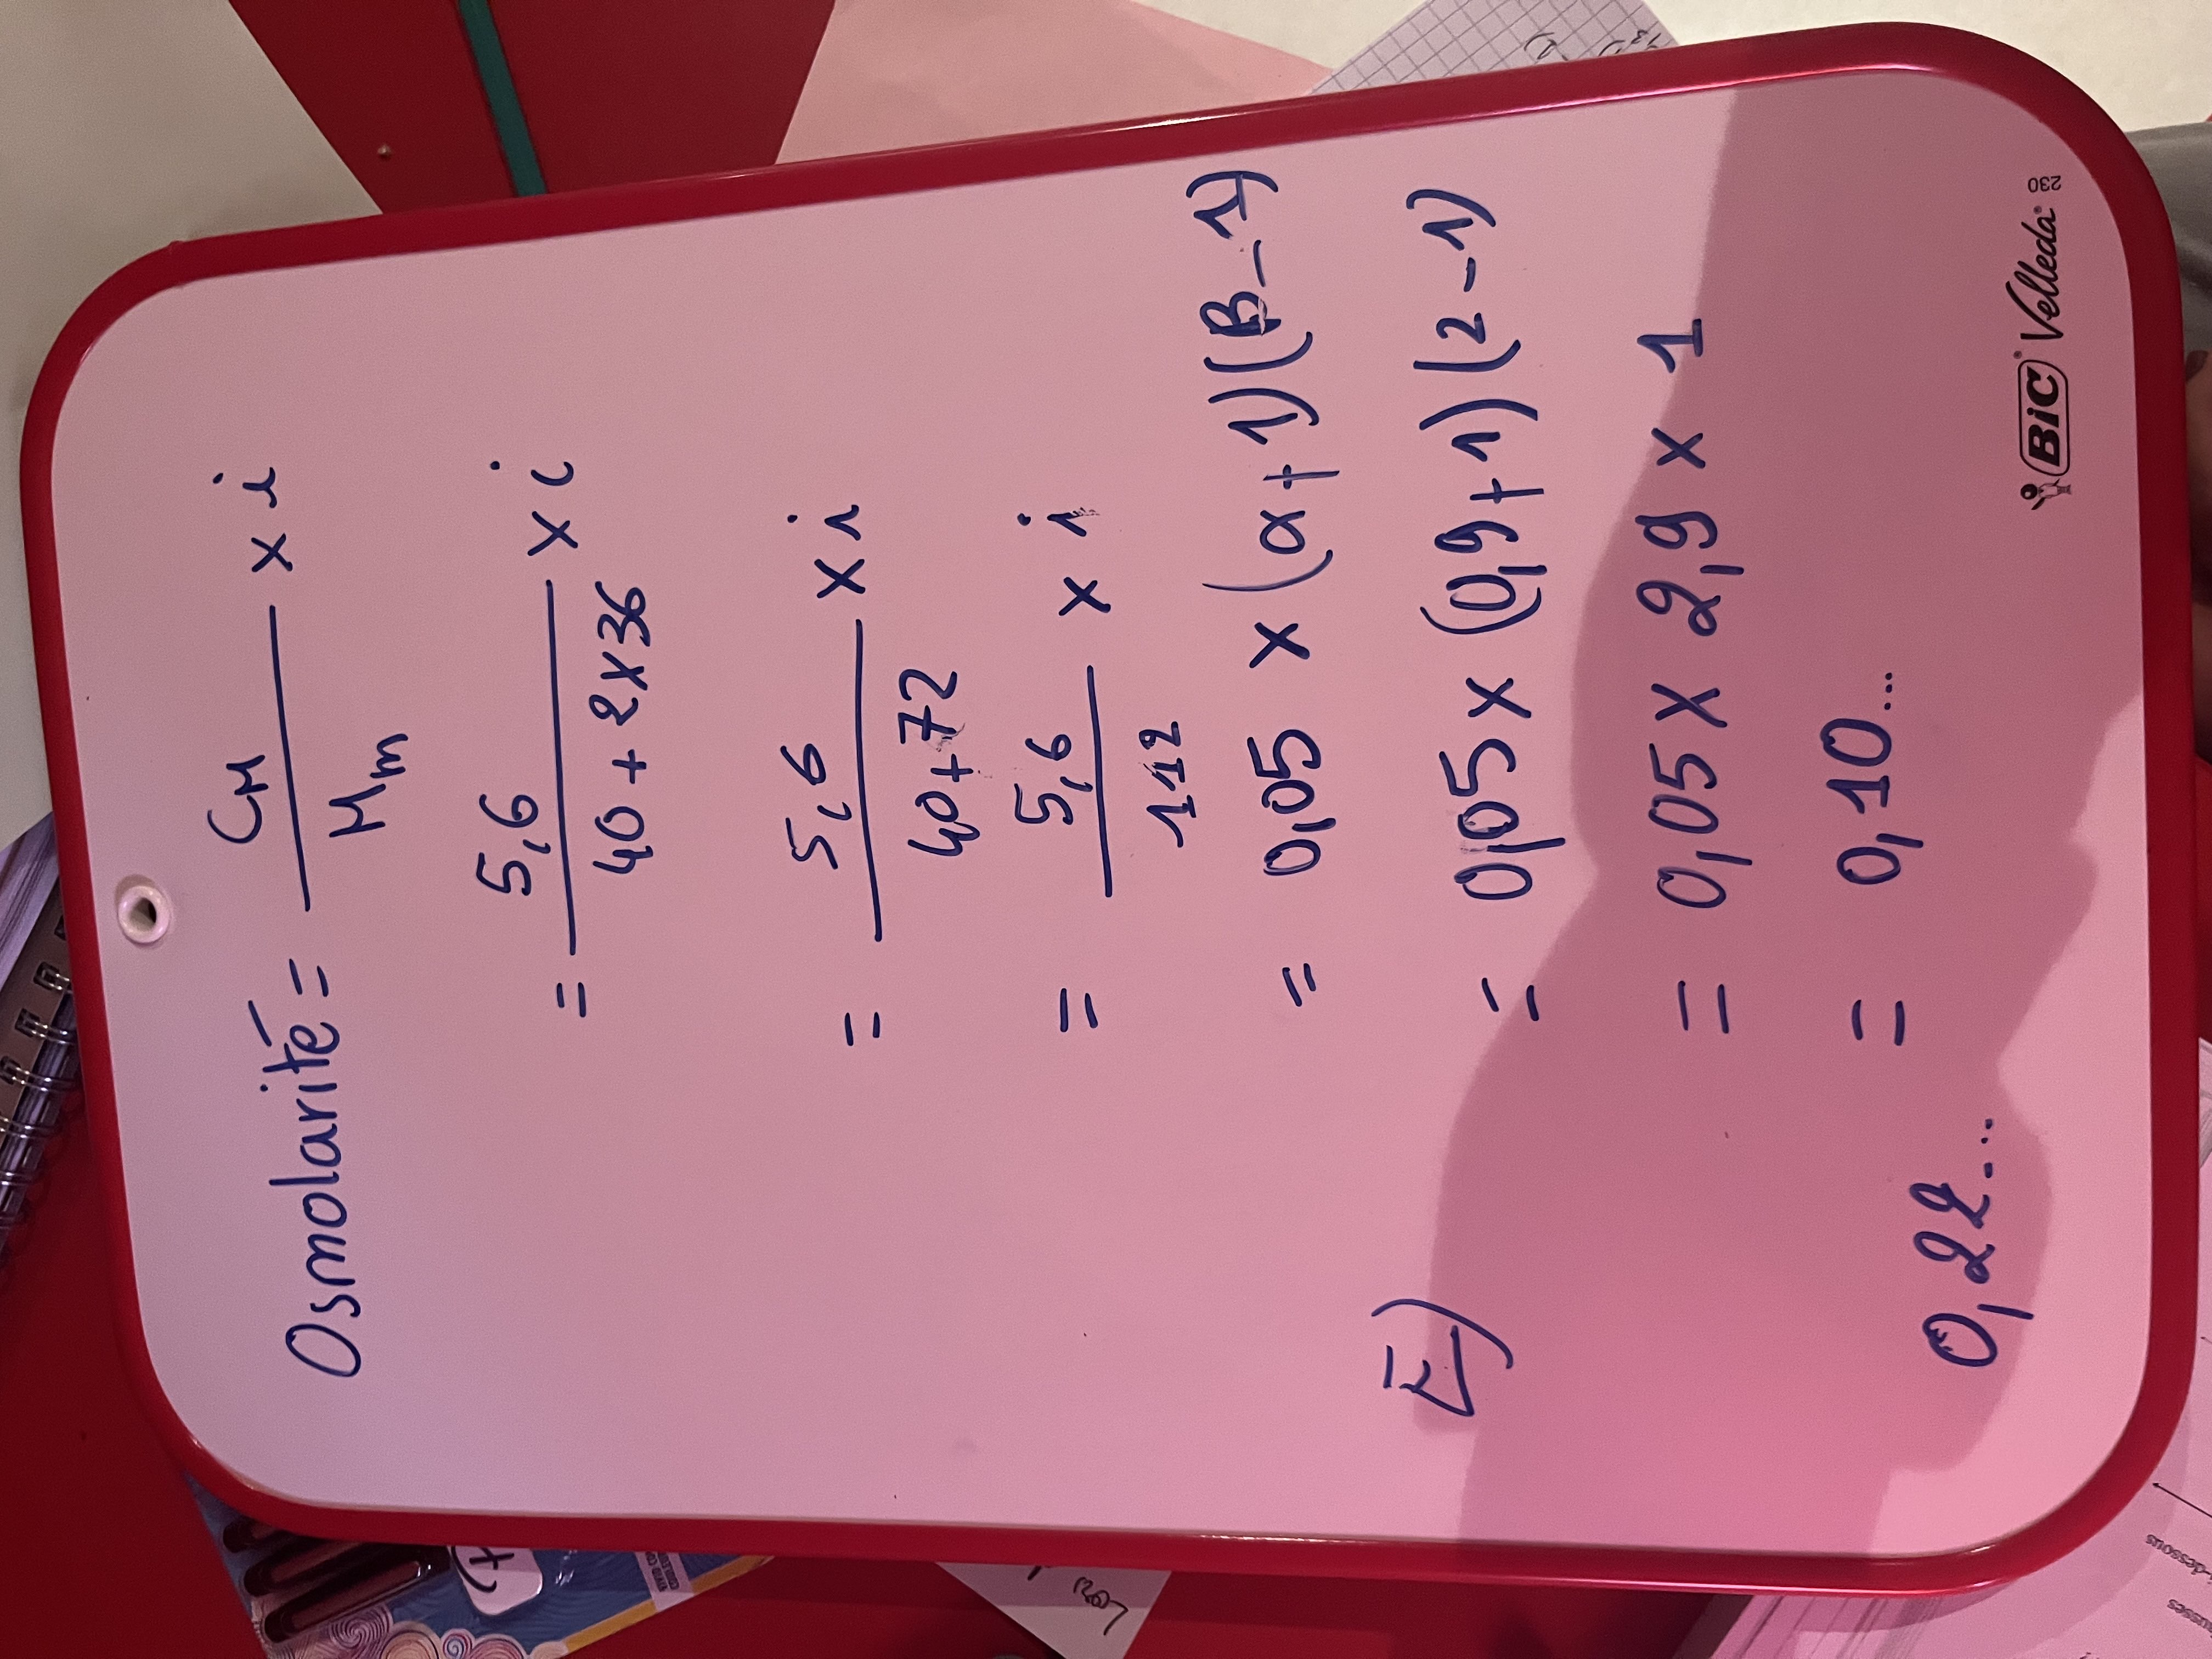 Osmolarité = CM / Mm x i
= 5,6 / 40 + 2x36 x i
= 5,6 / 40 + 72 x i
= 5,6 / 112 x i
= 0,05 x (α + 1)(B - 1)
E) = 0,05 x (0,9 + 1)(2 - 1)
= 0,05 x 2,9 x 1
= 0,10...
0,22...
BiC Velleda 230